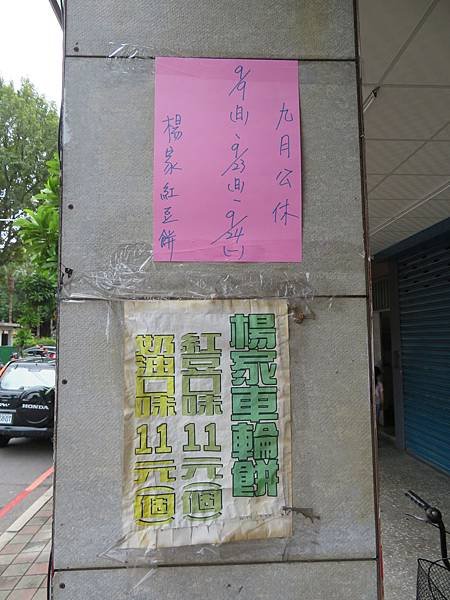 九月公休
9/9(日)、9/23(日)、9/24(一)
楊家紅豆餅
楊家車輪餅
紅豆口味11元個
奶油口味11元個
HONDA